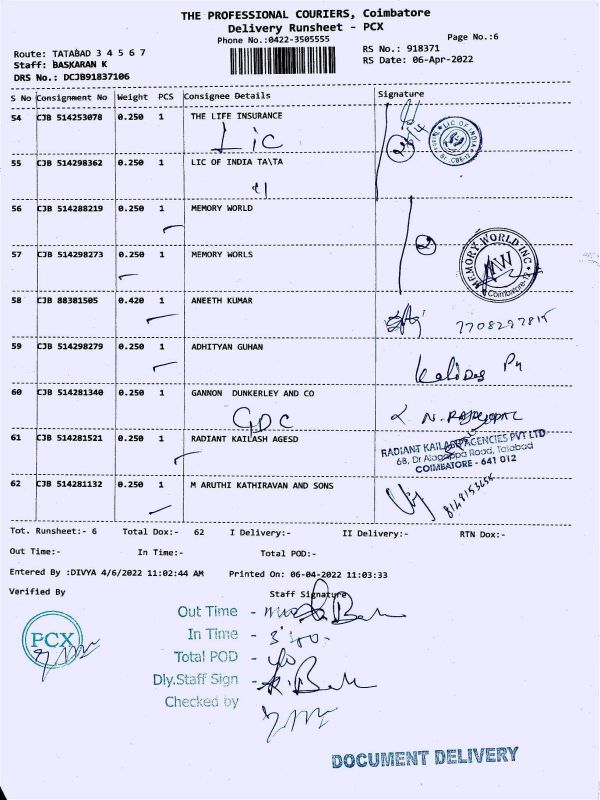 THE PROFESSIONAL COURIERS, Coimbatore
Delivery Runsheet - PCX
Phone No.:0422-3505555
Page No.:6
Route: TATABAD 3 4 5 6 7
RS No.: 918371
Staff: BASKARAN K
RS Date: 06-Apr-2022
DRS No.: DCJB91837106
S No Consignment No Weight PCS Consignee Details Signature
54 CJB 514253078 0.250 1 THE LIFE INSURANCE
LIC
LIC OF INDIA
55 CJB 514298362 0.250 1 LIC OF INDIA TA\TA
56 CJB 514288219 0.250 1 MEMORY WORLD
2
MEMORY WORLD INC
MW
Coimbatore-12
57 CJB 514298273 0.250 1 MEMORY WORLS
58 CJB 88381505 0.420 1 ANEETH KUMAR
7708297815
59 CJB 514298279 0.250 1 ADHITYAN GUHAN
Kalidas
60 CJB 514281340 0.250 1 GANNON DUNKERLEY AND CO
GDC
N. RAJAGOPAL
61 CJB 514281521 0.250 1 RADIANT KAILASH AGESD
RADIANT KAILASH AGENCIES PVT LTD
68, Dr Alagappa Road, Tatabad
COIMBATORE - 641 012
62 CJB 514281132 0.250 1 M ARUTHI KATHIRAVAN AND SONS
Tot. Runsheet:- 6 Total Dox:- 62 I Delivery:- II Delivery:- RTN Dox:-
Out Time:- In Time:- Total POD:-
Entered By :DIVYA 4/6/2022 11:02:44 AM Printed On: 06-04-2022 11:03:33
Verified By Staff Signature
Out Time -
In Time -
PCX
Total POD -
Dly.Staff Sign -
Checked by
DOCUMENT DELIVERY